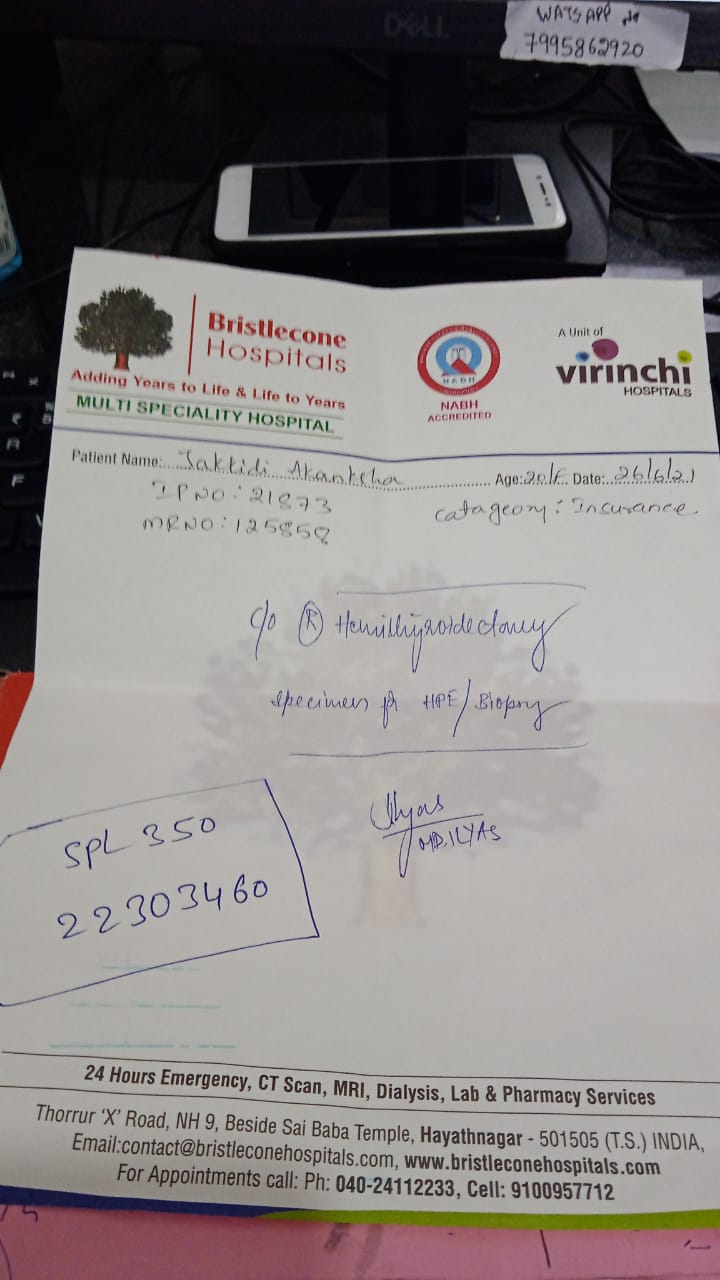 DELL
WATSAPP no
7995862920
Bristlecone
Hospitals
Adding Years to Life & Life to Years
MULTI SPECIALITY HOSPITAL
NABH
NABH
ACCREDITED
A Unit of
virinchi
HOSPITALS
Patient Name: Jakkidi Akanksha Age: 20/F Date: 26/6/21
IP NO : 21873
MRNO : 125858
catageory : Insurance
c/o Ⓡ Hemithyroidectomy
specimen for HPE/Biopsy
Ilyas
MD. ILYAS
SPL 350
22303460
24 Hours Emergency, CT Scan, MRI, Dialysis, Lab & Pharmacy Services
Thorrur 'X' Road, NH 9, Beside Sai Baba Temple, Hayathnagar - 501505 (T.S.) INDIA,
Email:contact@bristleconehospitals.com, www.bristleconehospitals.com
For Appointments call: Ph: 040-24112233, Cell: 9100957712